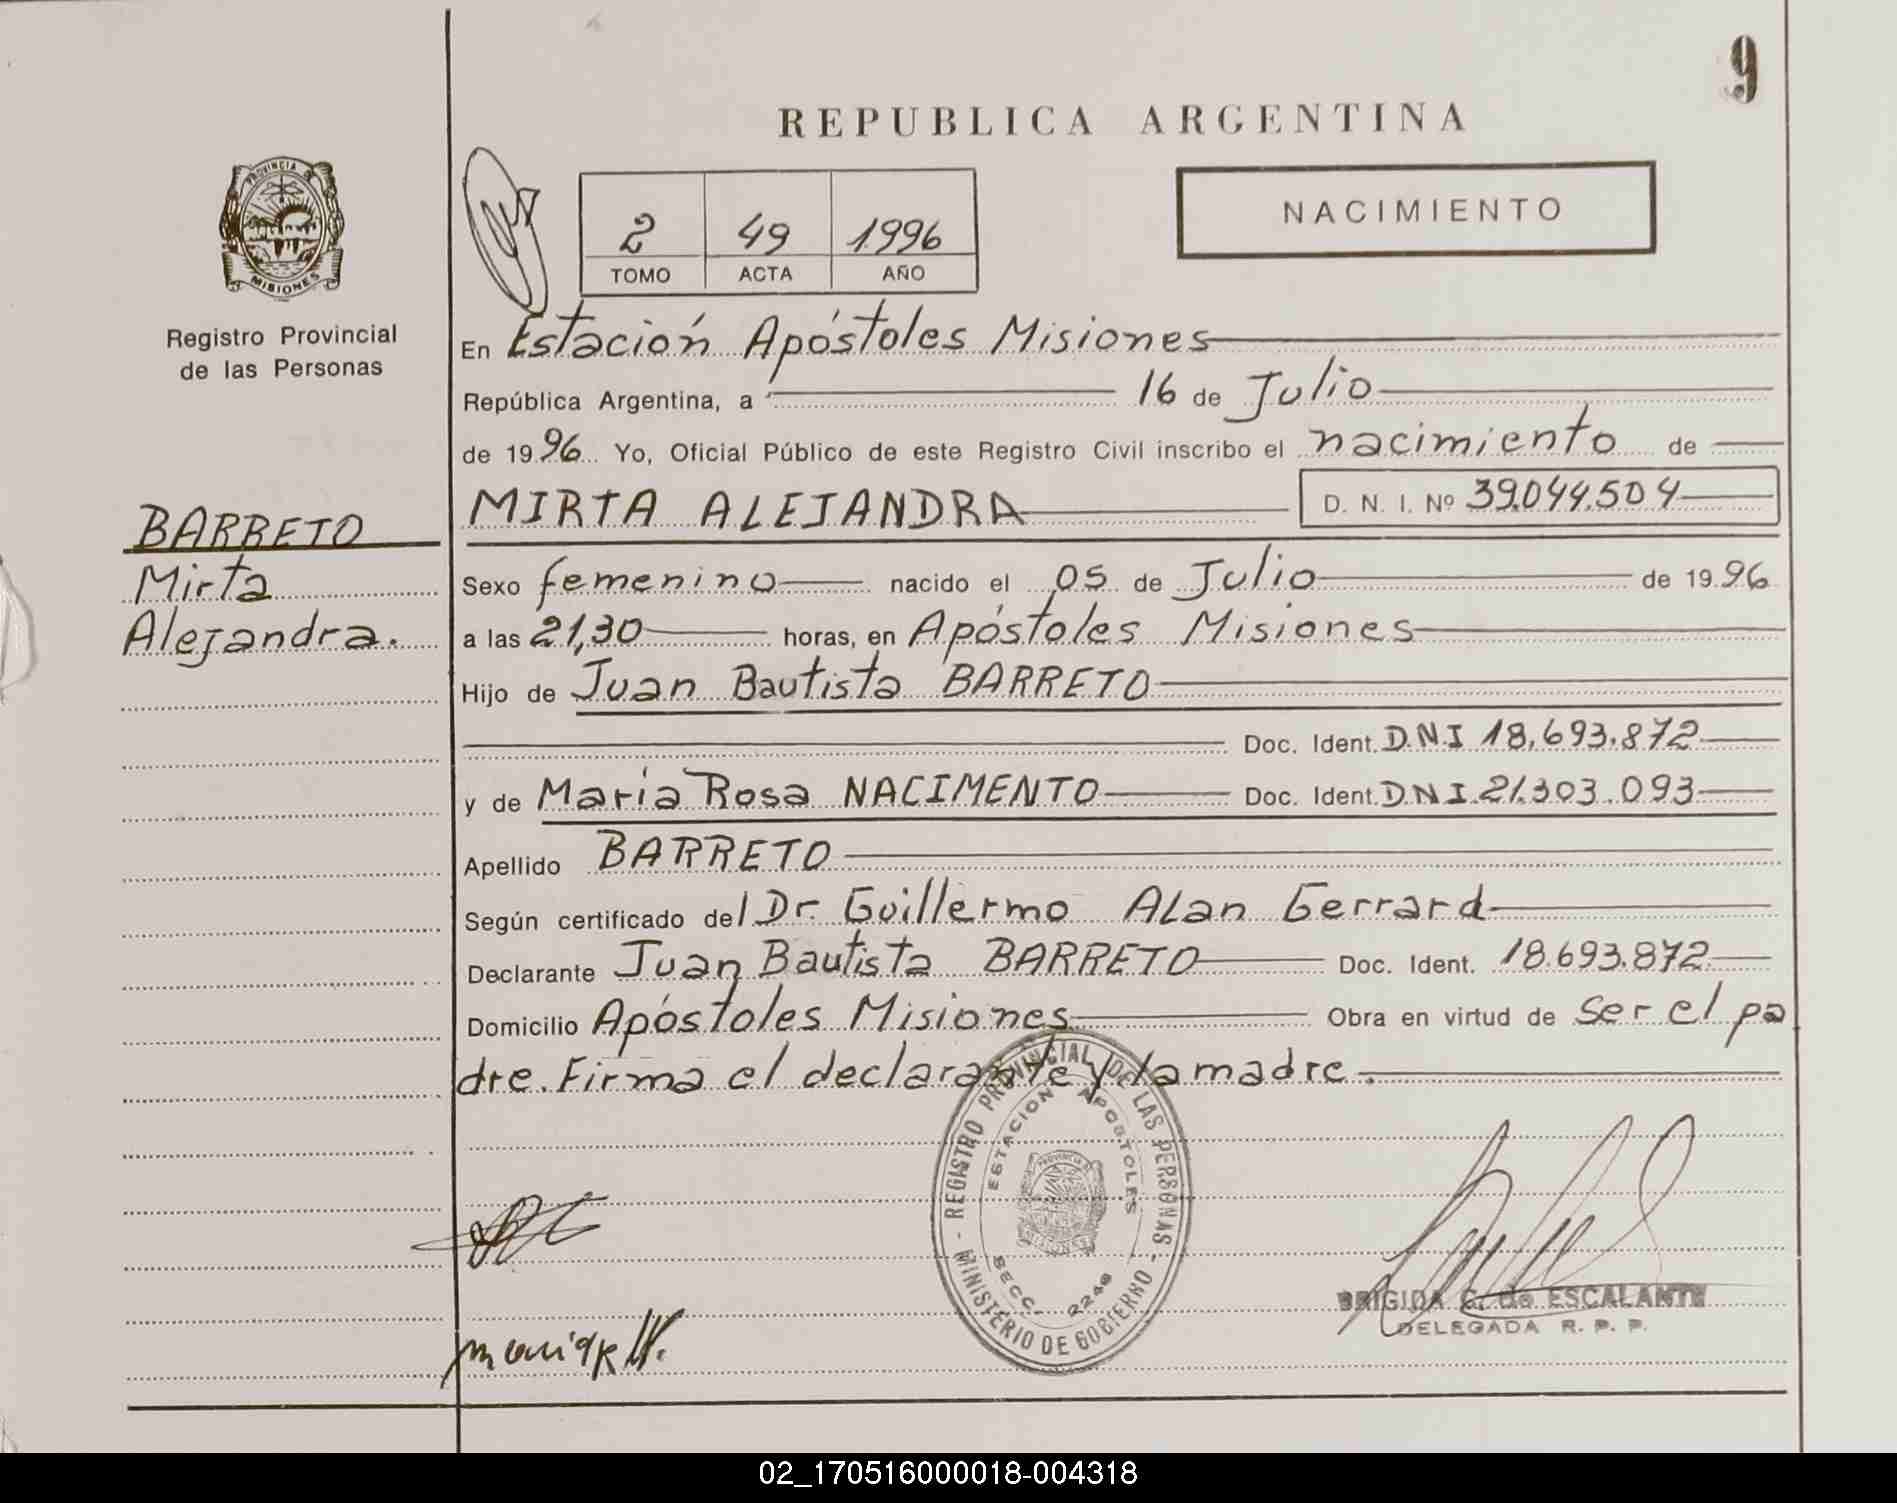 9
REPUBLICA ARGENTINA
PROVINCIA DE
MISIONES
Registro Provincial
de las Personas
2 49 1996
TOMO ACTA AÑO
NACIMIENTO
En Estación Apóstoles Misiones
República Argentina, a 16 de Julio
de 1996 Yo, Oficial Público de este Registro Civil inscribo el nacimiento de
MIRTA ALEJANDRA D. N. I. Nº 39.044.504
BARRETO
Mirta
Alejandra.
Sexo femenino nacido el 05 de Julio de 1996
a las 21,30 horas, en Apóstoles Misiones
Hijo de Juan Bautista BARRETO
Doc. Ident. D.N.I 18.693.872
y de Maria Rosa NACIMENTO Doc. Ident. DNI.21.303.093
Apellido BARRETO
Según certificado del Dr. Guillermo Alan Gerrard
Declarante Juan Bautista BARRETO Doc. Ident. 18.693.872
Domicilio Apóstoles Misiones Obra en virtud de ser el pa
dre. Firma el declarante y la madre.
REGISTRO PROVINCIAL DE LAS PERSONAS - MINISTERIO DE GOBIERNO -
ESTACION APOSTOLES
SECC. 2240
BRIGIDA G. de ESCALANTE
DELEGADA R. P. P.
02_170516000018-004318